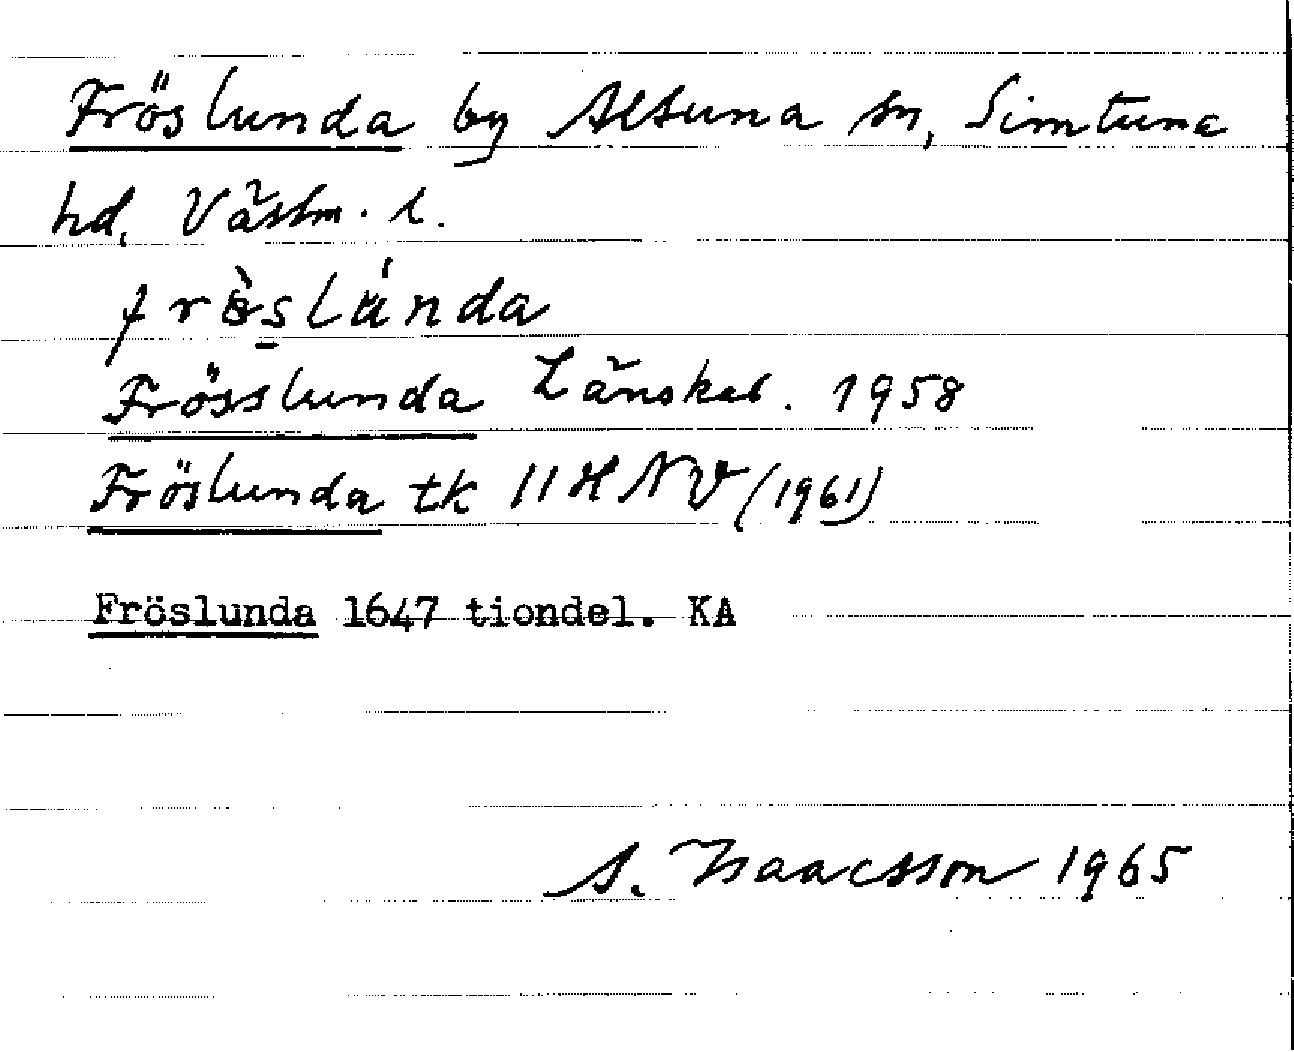 Fröslunda by Altuna sn, Simtuna
hd, Västm. l.
frö̀slúnda
Frösslunda Länskab. 1958
Fröslunda tk 11H NV (1961)
Fröslunda 1647 tiondel. KA
A. Isaacsson 1965